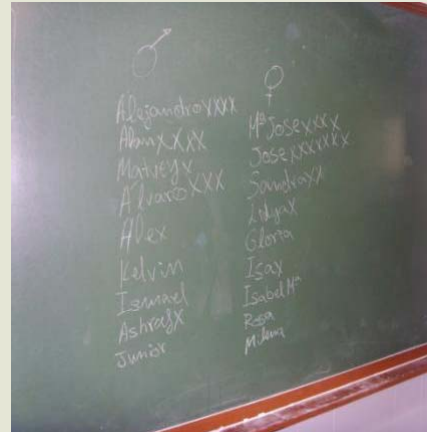 Alejandro xxxx
Alan xxxx
Matvey x
Álvaro xxx
Alex
Kelvin
Ismael
Ashraf x
Junior
Mª Jose xxxx
Jose xxxxxxx
Sandra xx
Lidya x
Gloria
Isa x
Isabel Mª
Rosa
Milena